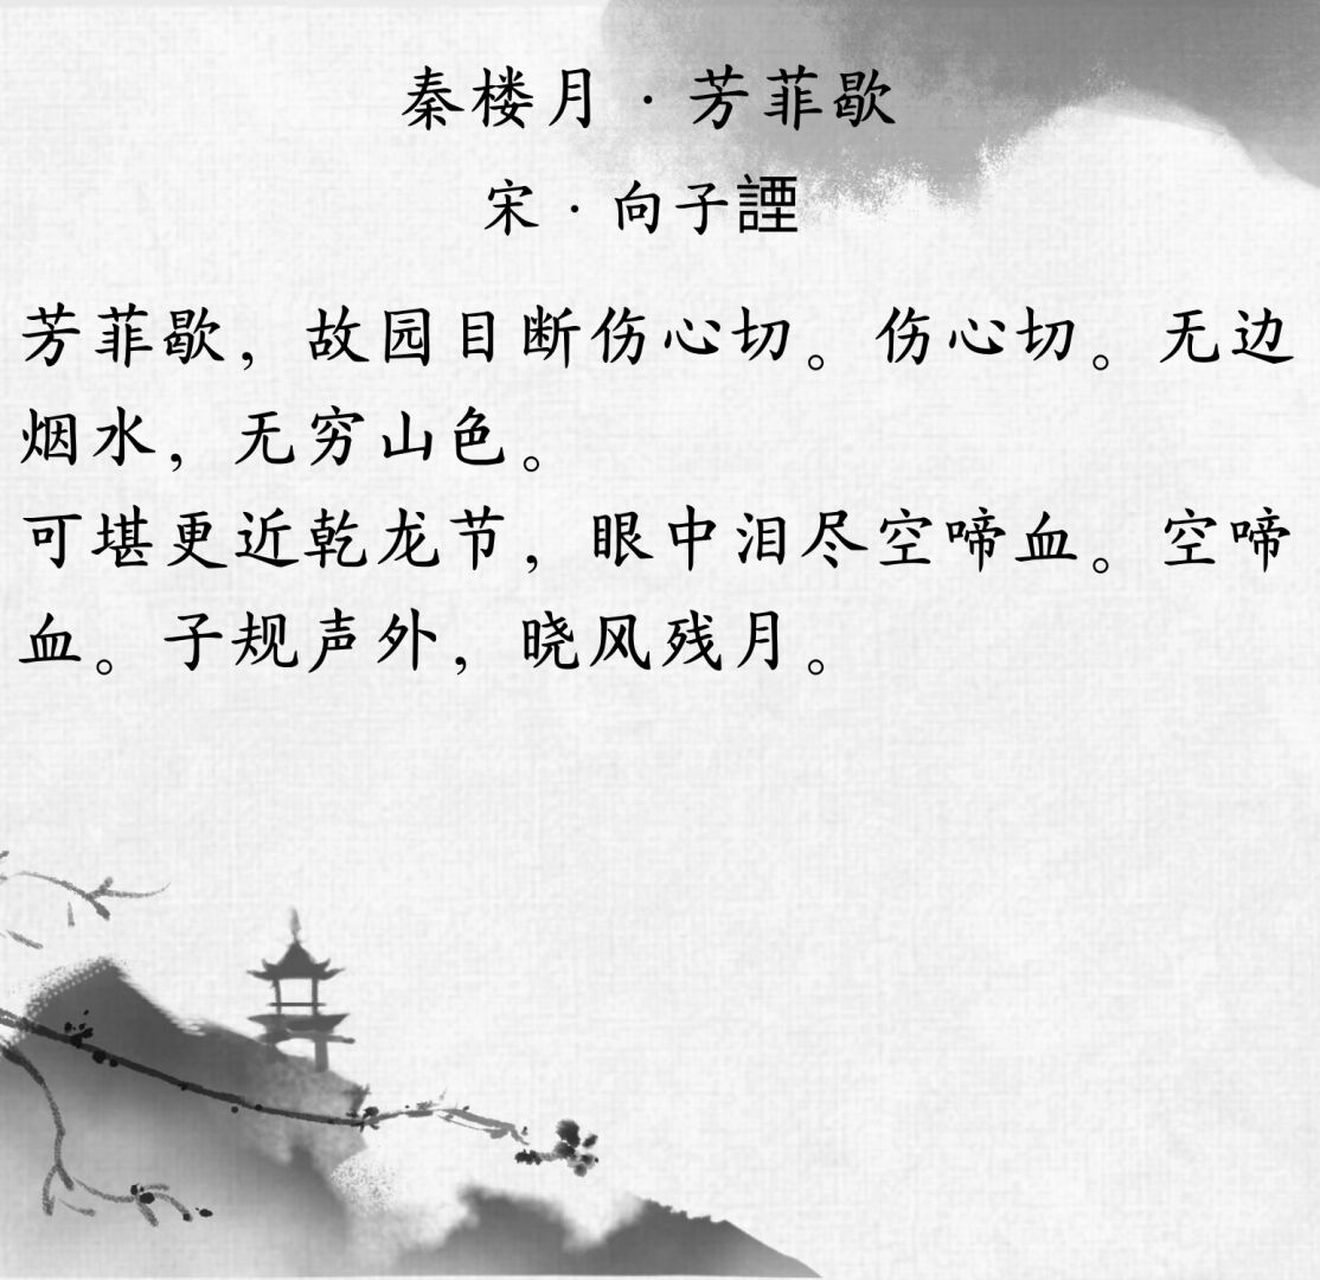 秦楼月·芳菲歇
宋·向子諲
芳菲歇，故园目断伤心切。伤心切。无边
烟水，无穷山色。
可堪更近乾龙节，眼中泪尽空啼血。空啼
血。子规声外，晓风残月。